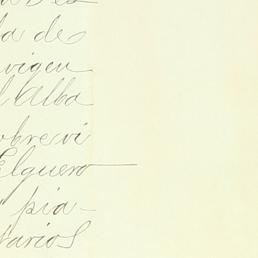 a de
vigen
l Alba
obrevi
Elguero
" pia-
Varios